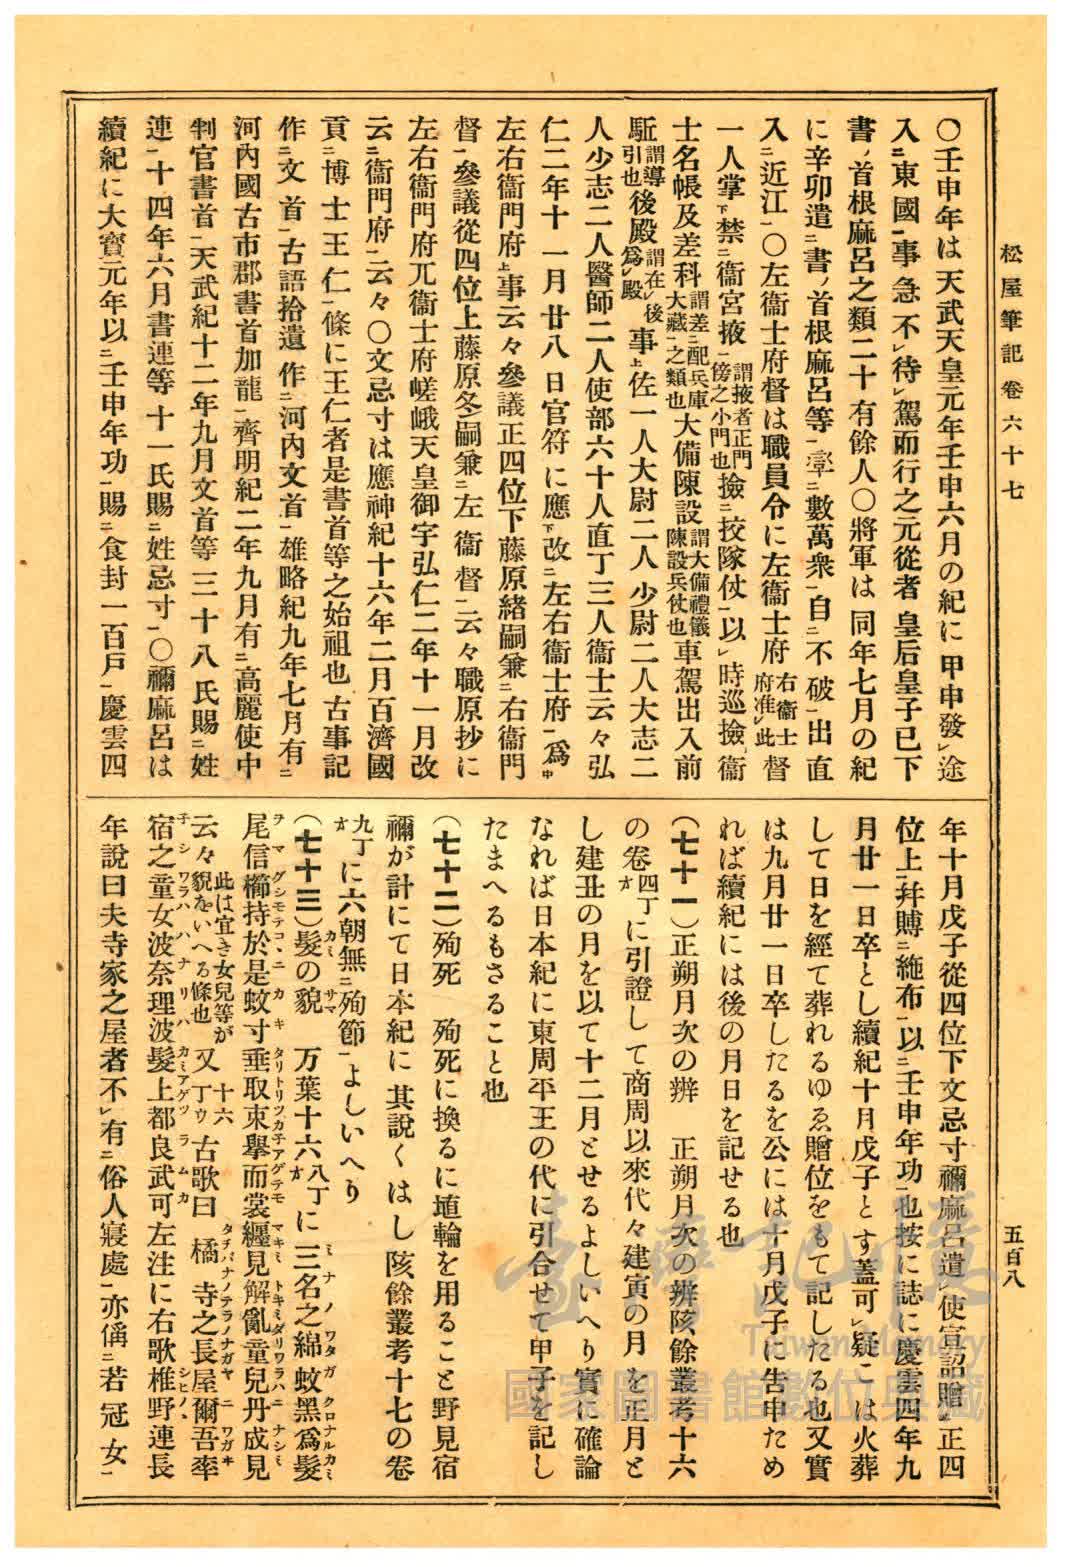 松屋筆記卷六十七
五百八
〇壬申年は天武天皇元年壬申六月の紀に甲申發レ途
入ニ東國一事急不レ待レ駕而行之元從者 皇后皇子已下
書ノ首根麻呂之類二十有餘人〇將軍は同年七月の紀
に辛卯遣ニ書ノ首根麻呂等一率ニ數萬衆一自ニ不破一出直
入ニ近江一〇左衞士府督は職員令に左衞士府右衞士府准レ此督
一人掌下禁ニ衞宮掖一謂掖者正門傍之小門也撿ニ挍隊仗一以レ時巡撿衞
士名帳及差科謂差ニ配兵庫大藏一之類也大備陳設謂大備禮儀陳設兵仗也車駕出入前
駈謂導引也後殿謂在レ後爲レ殿事上佐一人大尉二人少尉二人大志二
人少志二人醫師二人使部六十人直丁三人衞士云々弘
仁二年十一月廿八日官符に應下改ニ左右衞士府一爲中
左右衞門府上事云々參議正四位下藤原緒嗣兼ニ右衞門
督一參議從四位上藤原冬嗣兼ニ左衞督一云々職原抄に
左右衞門府兀衞士府嵯峨天皇御宇弘仁二年十一月改
云ニ衞門府一云々〇文忌寸は應神紀十六年二月百濟國
貢ニ博士王仁一條に王仁者是書首等之始祖也古事記
作ニ文首一古語拾遺作ニ河內文首一雄略紀九年七月有ニ
河內國古市郡書首加龍一齊明紀二年九月有ニ高麗使中
判官書首一天武紀十二年九月文首等三十八氏賜ニ姓
連一十四年六月書連等十一氏賜ニ姓忌寸一〇禰麻呂は
續紀に大寶元年以ニ壬申年功一賜ニ食封一百戶一慶雲四
年十月戊子從四位下文忌寸禰麻呂遣レ使宣詔贈レ正四
位上一幷賻ニ絁布一以ニ壬申年功一也按に誌に慶雲四年九
月廿一日卒とし續紀十月戊子とす蓋可レ疑こは火葬
して日を經て葬れるゆゑ贈位をもて記したる也又實
は九月廿一日卒したるを公には十月戊子に告申ため
れば續紀には後の月日を記せる也
(七十一)正朔月次の辨 正朔月次の辨陔餘叢考十六
の卷四丁オに引證して商周以來代々建寅の月を正月と
し建丑の月を以て十二月とせるよしいへり實に確論
なれば日本紀に東周平王の代に引合せて甲子を記し
たまへるもさること也
(七十二)殉死 殉死に換るに埴輪を用ること野見宿
禰が計にて日本紀に其說くはし陔餘叢考十七の卷
九丁オに六朝無ニ殉節一よしいへり
(七十三)髮の貌カミ サマ 万葉十六八丁オに三名之綿蚊黑爲髮ミナノワタガクロナルカミ
尾信櫛持於是蚊寸垂取束擧而裳纒見解亂童兒丹成見ヲマグシモテコヽニカキタリトリツカテアゲテモマキミトキミダリワラハニナシミ
云々此は宜き女兒等が貌をいへる條也又十六丁ウ古歌曰 橘寺之長屋爾吾率タチバナノテラノナガヤニワガヰ
宿之童女波奈理波髮上都良武可左注に右歌椎野連長子シワラハハナリハカミアゲツラムカシヒノヽ
年說曰夫寺家之屋者不レ有ニ俗人寢處一亦偁ニ若冠女一
臺灣記憶
Taiwan Memory
國家圖書館數位典藏